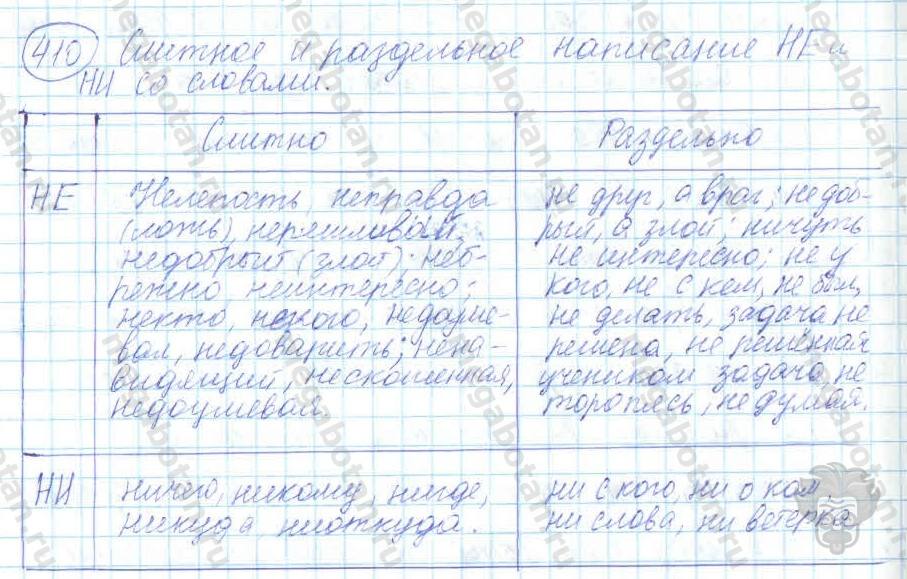 410 Слитное и раздельное написание НЕ и
НИ со словами.
Слитно
Раздельно
НЕ
Нелепость, неправда
(ложь), неряшливый,
недобрый (злой); неб-
режно, неинтересно;
некто, некого, недоуме-
вал, недоварить; нена-
видящий, нескошенная,
недоумевая.
не друг, а враг; не доб-
рый, а злой; ничуть
не интересно; не у
кого, не с кем, не был,
не делать, задача не
решена, не решённая
учеником задача, не
торопясь, не думая.
НИ
ничего, никому, нигде,
никуда, ниоткуда.
ни с кого, ни о ком,
ни слова, ни ветерка
megabotan.ru